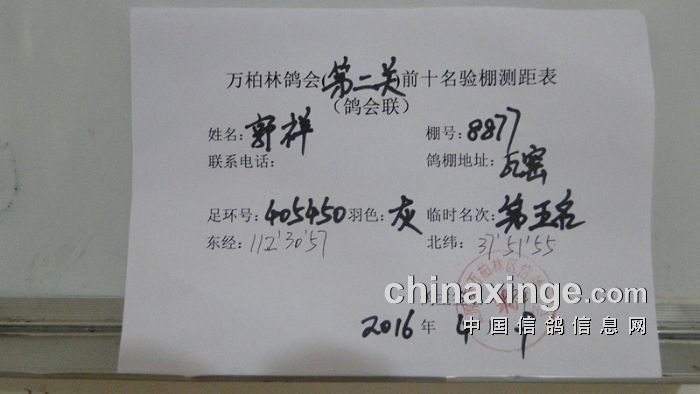 万柏林鸽会(第二关)前十名验棚测距表
(鸽会联)
姓名:郭祥 棚号:8877
联系电话: 鸽棚地址:瓦窑
足环号:405450 羽色:灰 临时名次:第五名
东经:112'30'57 北纬:37'51'55
chinaxinge.com
中国信鸽信息网
2016年 4 9